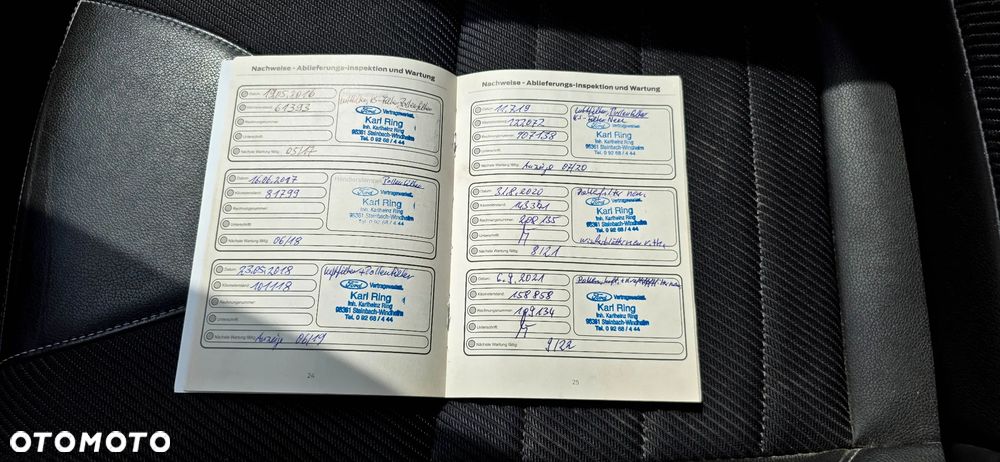 Nachweise - Ablieferungs-Inspektion und Wartung
Datum: 19.05.2016
Kilometerstand: 61393
Rechnungsnummer:
Unterschrift:
Nächste Wartung fällig: 05/17
Ford Vertragswerkst.
Karl Ring
Inh. Karlheinz Ring
95361 Steinbach-Windheim
Tel. 0 92 68 / 4 44
Datum: 16.06.2017
Kilometerstand: 81799
Rechnungsnummer:
Unterschrift:
Nächste Wartung fällig: 06/18
Händlerstempel
Pollenfilter
Ford Vertragswerkst.
Karl Ring
Inh. Karlheinz Ring
95361 Steinbach-Windheim
Tel. 0 92 68 / 4 44
Datum: 23.05.2018
Kilometerstand: 101118
Rechnungsnummer:
Unterschrift:
Nächste Wartung fällig: Anzeige 06/19
Luftfilter + Pollenfilter
Ford Vertragswerkst.
Karl Ring
Inh. Karlheinz Ring
95361 Steinbach-Windheim
Tel. 0 92 68 / 4 44
24
Nachweise - Ablieferungs-Inspektion und Wartung
Datum: 11.7.19
122072
Rechnungsnummer: 107138
Unterschrift:
Nächste Wartung fällig: Anzeige 07/20
Luftfilter, Pollenfilter
Filter Neu
Ford Vertragswerkst.
Karl Ring
Inh. Karlheinz Ring
95361 Steinbach-Windheim
Tel. 0 92 68 / 4 44
Datum: 31.8.2020
Kilometerstand: 143341
Rechnungsnummer: 202 135
Unterschrift:
Nächste Wartung fällig: 8/21
Pollefilter neu
Ford Vertragswerkst.
Karl Ring
Inh. Karlheinz Ring
95361 Steinbach-Windheim
Tel. 0 92 68 / 4 44
Datum: 6.9.2021
Kilometerstand: 158858
Rechnungsnummer: 199134
Unterschrift:
Nächste Wartung fällig: 9/22
Ford Vertragswerkst.
Karl Ring
Inh. Karlheinz Ring
95361 Steinbach-Windheim
Tel. 0 92 68 / 4 44
25
OTOMOTO